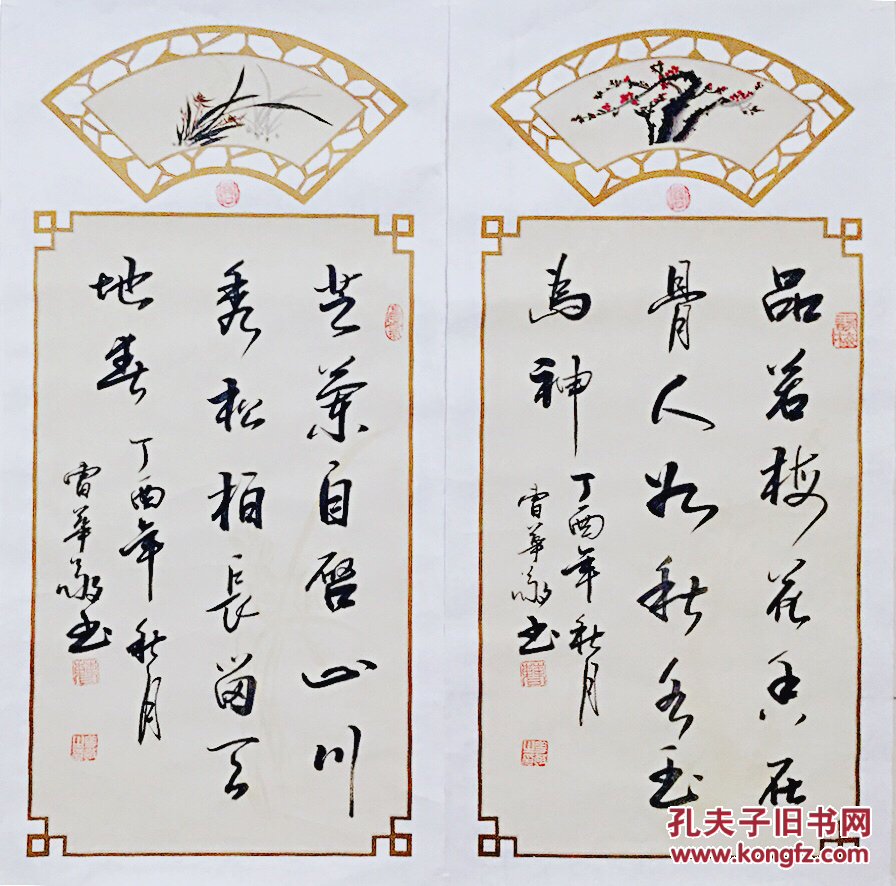 品若梅花香在
骨人如秋水玉
為神
丁酉年秋月
書
芝蘭自啓山川
秀松柏長留天
地春
丁酉年秋月
書
孔夫子旧书网
www.kongfz.com